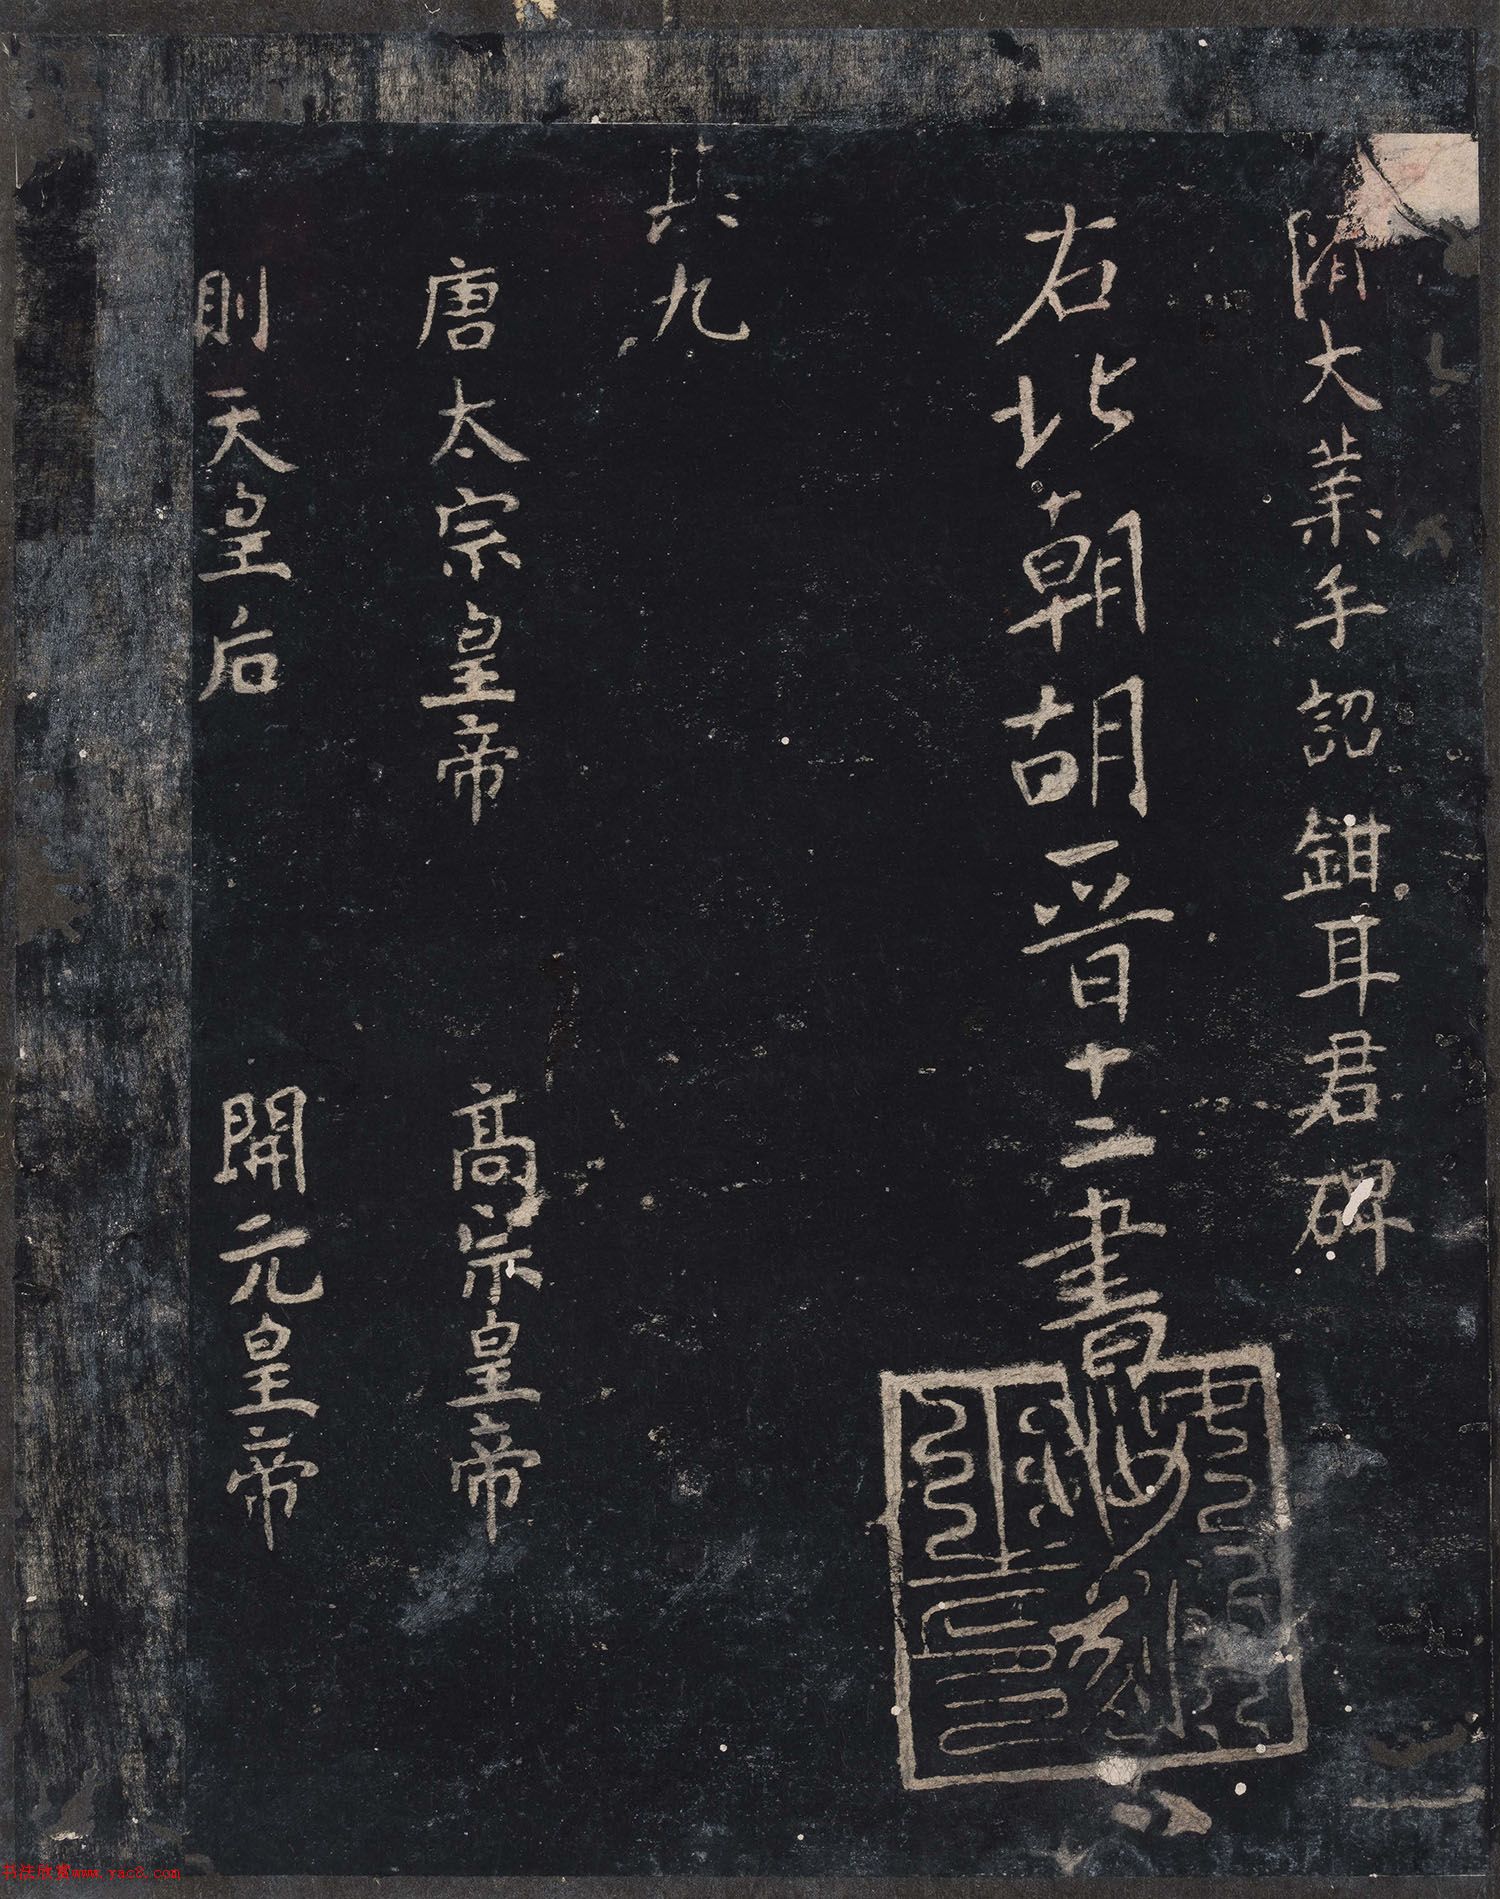 隋大業手詔鉗耳君碑
右北朝胡晉十二書
其九
唐太宗皇帝 高宗皇帝
則天皇后 開元皇帝
书法欣赏www.yac8.com